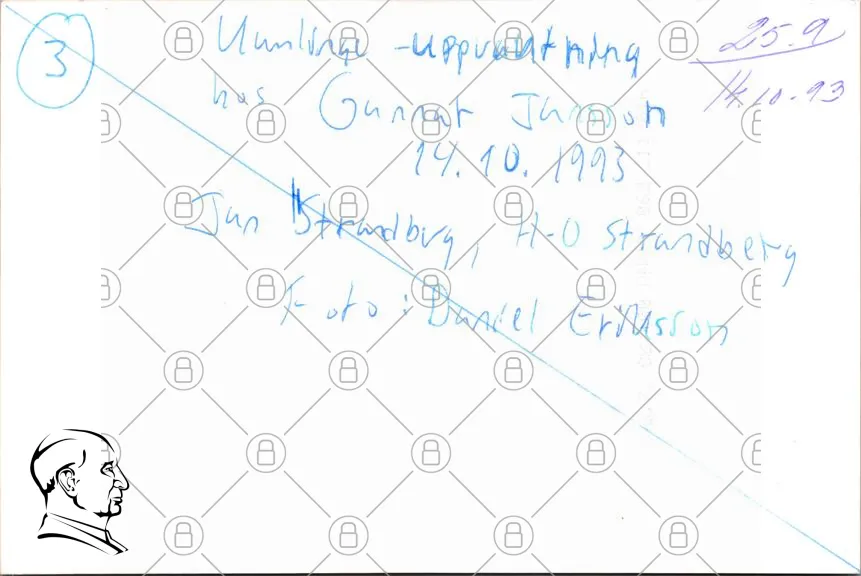 3
uppvaktning
25.9
hos Gunnar Jansson
14.10-93
14.10.1993
Jan Strandberg, H-O Strandberg
Foto: Daniel Eriksson